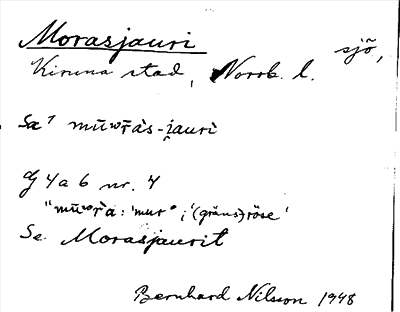 Morasjauri sjö,
Kiruna stad, Norrb. l.
Sa⁷ mūʷr̄às-i̯auri
G 4 a 6 nr. 4
"mūʷr̄à: 'mur'; '(gräns)röse'
Se Morasjaurit
Bernhard Nilsson 1948